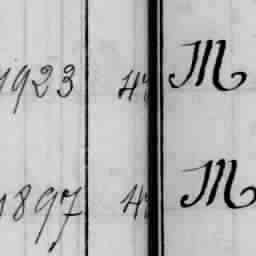 1923 M
1897 M